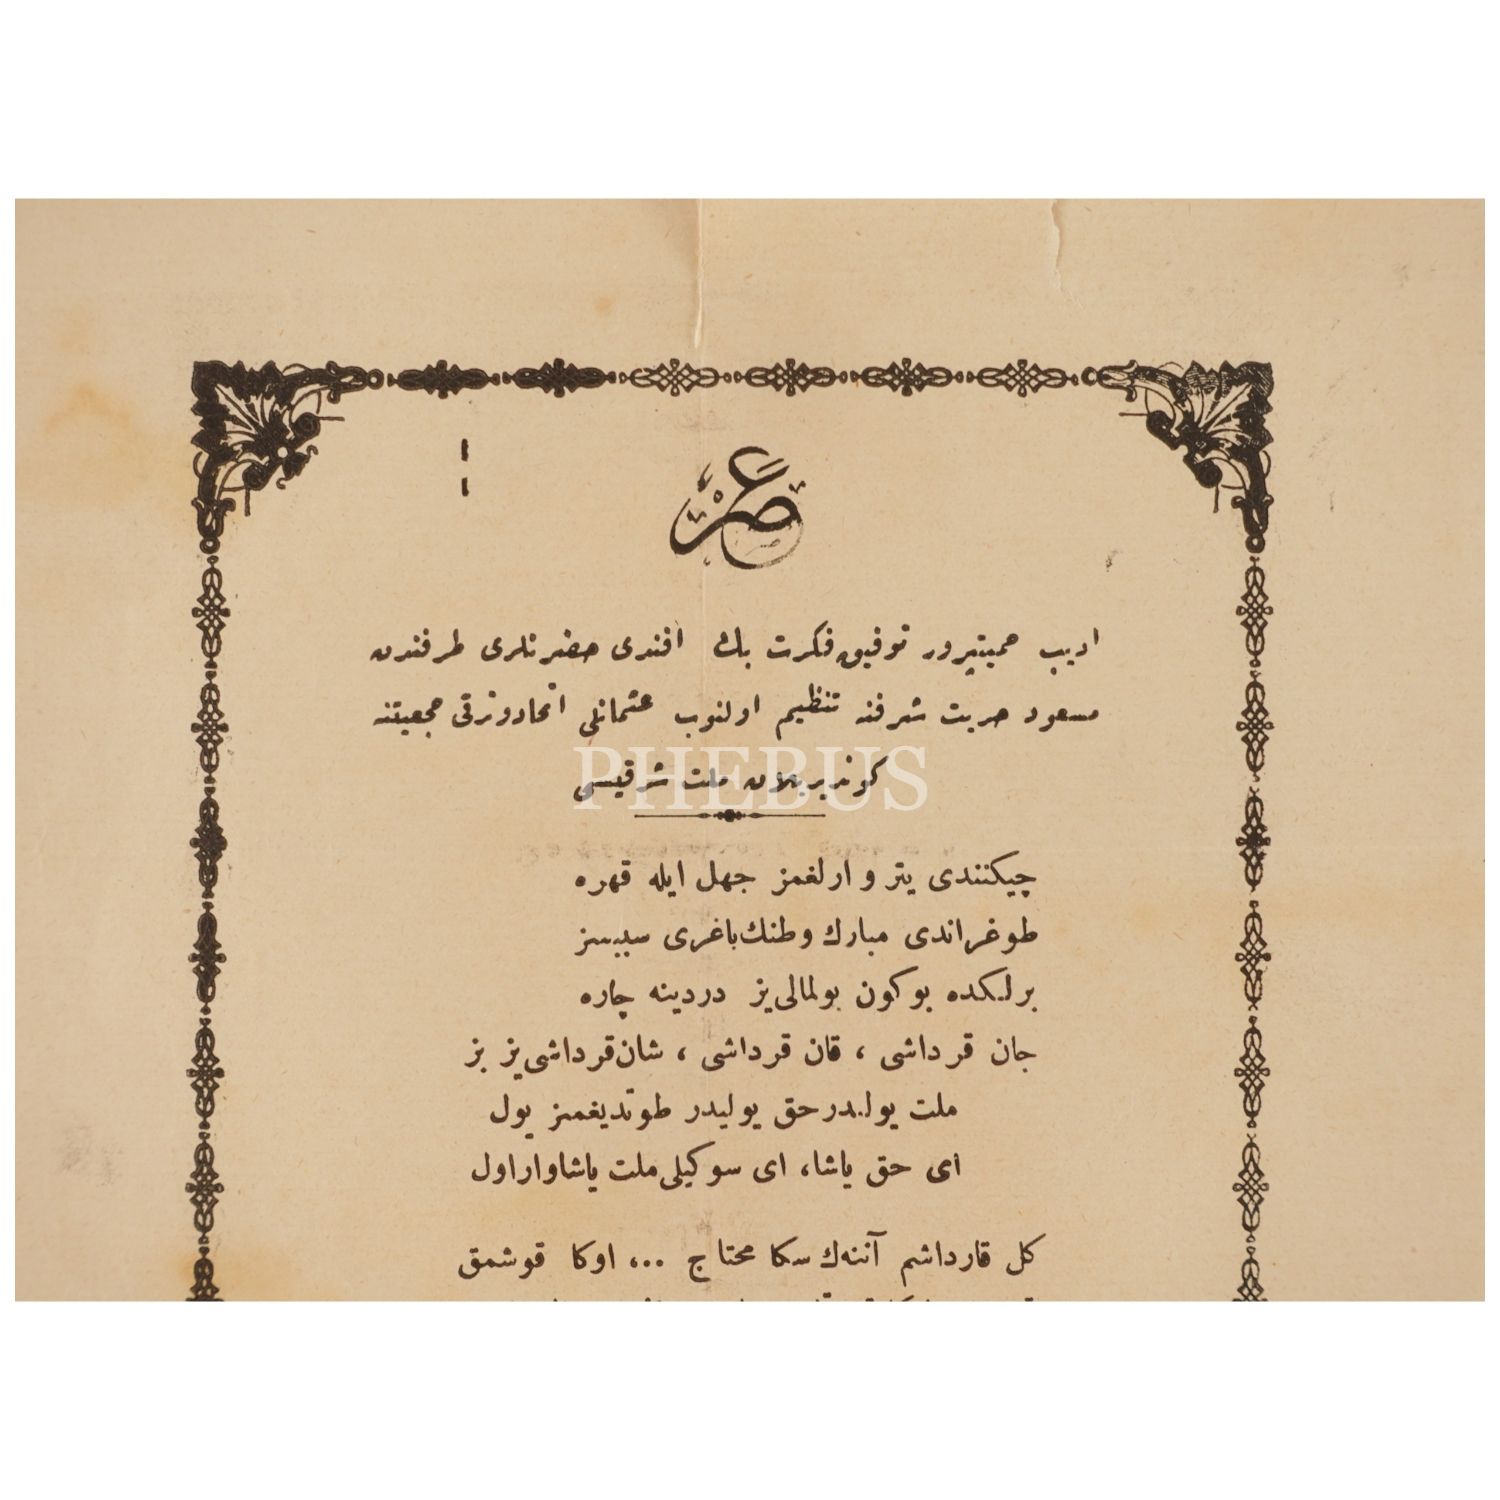 اديب حميتپرور توفيق فكرت بك افندى حضرتلرى طرفندن
مسعود حريت شرفنه تنظيم اولنوب عثمانلى اتحاد و ترقى جمعيتنه
كوندريلان ملت شرقيسى
PHEBUS
چيكنندى يتر وارلغمز جهل ايله قهره
طوغراندى مبارك وطنك باغرى سببسز
برلكده بوكون بولمالى‌يز دردينه چاره
جان قرداشى ، قان قرداشى ، شان قرداشى‌يز بز
ملت يوليدر حق يوليدر طوتديغمز يول
اى حق ياشا، اى سوكيلى ملت ياشا وار اول
كل قارداشم آننه‌ك سكا محتاج ...، اوكا قوشمق